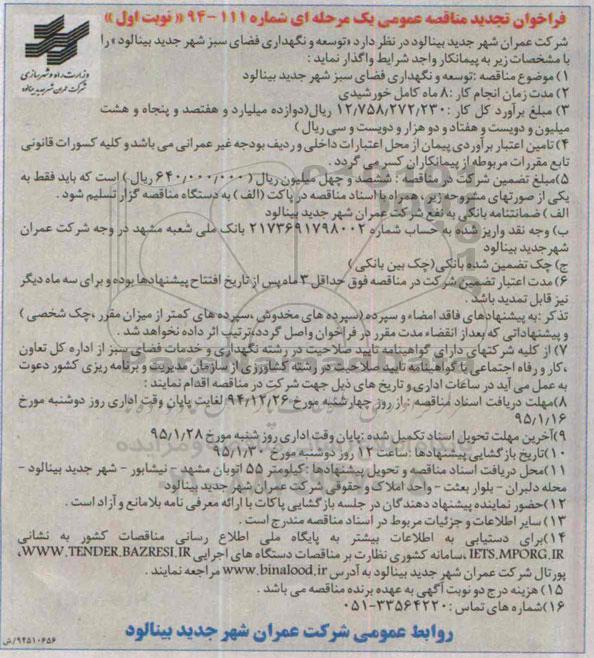 فراخوان تجدید مناقصه عمومی یک مرحله ای شماره ۱۱۱-۹۴ « نوبت اول »
وزارت راه و شهرسازی
شرکت عمران شهر جدید بینالود
شرکت عمران شهر جدید بینالود در نظر دارد «توسعه و نگهداری فضای سبز شهر جدید بینالود » را
با مشخصات زیر به پیمانکار واجد شرایط واگذار نماید :
۱) موضوع مناقصه :توسعه و نگهداری فضای سبز شهر جدید بینالود
۲) مدت زمان انجام کار :۸ ماه کامل خورشیدی
۳) مبلغ برآورد کل کار :۱۲,۷۵۸,۲۷۲,۲۳۰ ریال(دوازده میلیارد و هفتصد و پنجاه و هشت
میلیون و دویست و هفتاد و دو هزار و دویست و سی ریال )
۴) تامین اعتبار برآوردی پیمان از محل اعتبارات داخلی و ردیف بودجه غیر عمرانی می باشد و کلیه کسورات قانونی
تابع مقررات مربوطه از پیمانکاران کسر می گردد .
۵)مبلغ تضمین شرکت در مناقصه : ششصد و چهل میلیون ریال ( ۶۴۰,۰۰۰,۰۰۰ ریال ) است که باید فقط به
یکی از صورتهای مشروحه زیر ، همراه با اسناد مناقصه در پاکت (الف ) به دستگاه مناقصه گزار تسلیم شود .
الف ) ضمانتنامه بانکی به نفع شرکت عمران شهر جدید بینالود
ب) وجه نقد واریز شده به حساب شماره ۲۱۷۳۶۹۱۷۹۸۰۰۲ بانک ملی شعبه مشهد در وجه شرکت عمران
شهر جدید بینالود
ج) چک تضمین شده بانکی(چک بین بانکی)
۶) مدت اعتبار تضمین شرکت در مناقصه فوق حداقل ۳ ماه پس از تاریخ افتتاح پیشنهادها بوده و برای سه ماه دیگر
نیز قابل تمدید باشد .
تذکر :به پیشنهادهای فاقد امضاء و سپرده (سپرده های مخدوش ،سپرده های کمتر از میزان مقرر ،چک شخصی )
و پیشنهاداتی که بعد از انقضاء مدت مقرر در فراخوان واصل گردد،ترتیب اثر داده نخواهد شد .
۷) از کلیه شرکتهای دارای گواهینامه تایید صلاحیت در رشته نگهداری و خدمات فضای سبز از اداره کل تعاون
،کار و رفاه اجتماعی یا گواهینامه تایید صلاحیت در رشته کشاورزی از سازمان مدیریت و برنامه ریزی کشور دعوت
به عمل می آید در ساعات اداری و تاریخ های ذیل جهت شرکت در مناقصه اقدام نمایند :
۸)مهلت دریافت اسناد مناقصه : از روز چهارشنبه مورخ ۹۴/۱۲/۲۶ لغایت پایان وقت اداری روز دوشنبه مورخ
۹۵/۱/۱۶
۹)آخرین مهلت تحویل اسناد تکمیل شده :پایان وقت اداری روز شنبه مورخ ۹۵/۱/۲۸
۱۰)تاریخ بازگشایی پیشنهادها :ساعت ۱۲ روز دوشنبه مورخ ۹۵/۱/۳۰
۱۱)محل دریافت اسناد مناقصه و تحویل پیشنهادها :کیلومتر ۵۵ اتوبان مشهد - نیشابور - شهر جدید بینالود -
محله دلبران - بلوار بعثت - واحد املاک و حقوقی شرکت عمران شهر جدید بینالود
۱۲)حضور نماینده پیشنهاد دهندگان در جلسه بازگشایی پاکات با ارائه معرفی نامه بلامانع و آزاد است .
۱۳) سایر اطلاعات و جزئیات مربوط در اسناد مناقصه مندرج است .
۱۴)برای دستیابی به اطلاعات بیشتر به پایگاه ملی اطلاع رسانی مناقصات کشور به نشانی
IETS.MPORG.IR ،سامانه کشوری نظارت بر مناقصات دستگاه های اجرایی WWW.TENDER.BAZRESI.IR،
پورتال شرکت عمران شهر جدید بینالود به آدرس www.binalood.ir مراجعه نمایند .
۱۵) هزینه درج دو نوبت آگهی به عهده برنده مناقصه می باشد .
۱۶)شماره های تماس : ۳۳۵۶۴۲۲۰-۰۵۱
روابط عمومی شرکت عمران شهر جدید بینالود
۹۴۵۱۰۶۵۶/ش